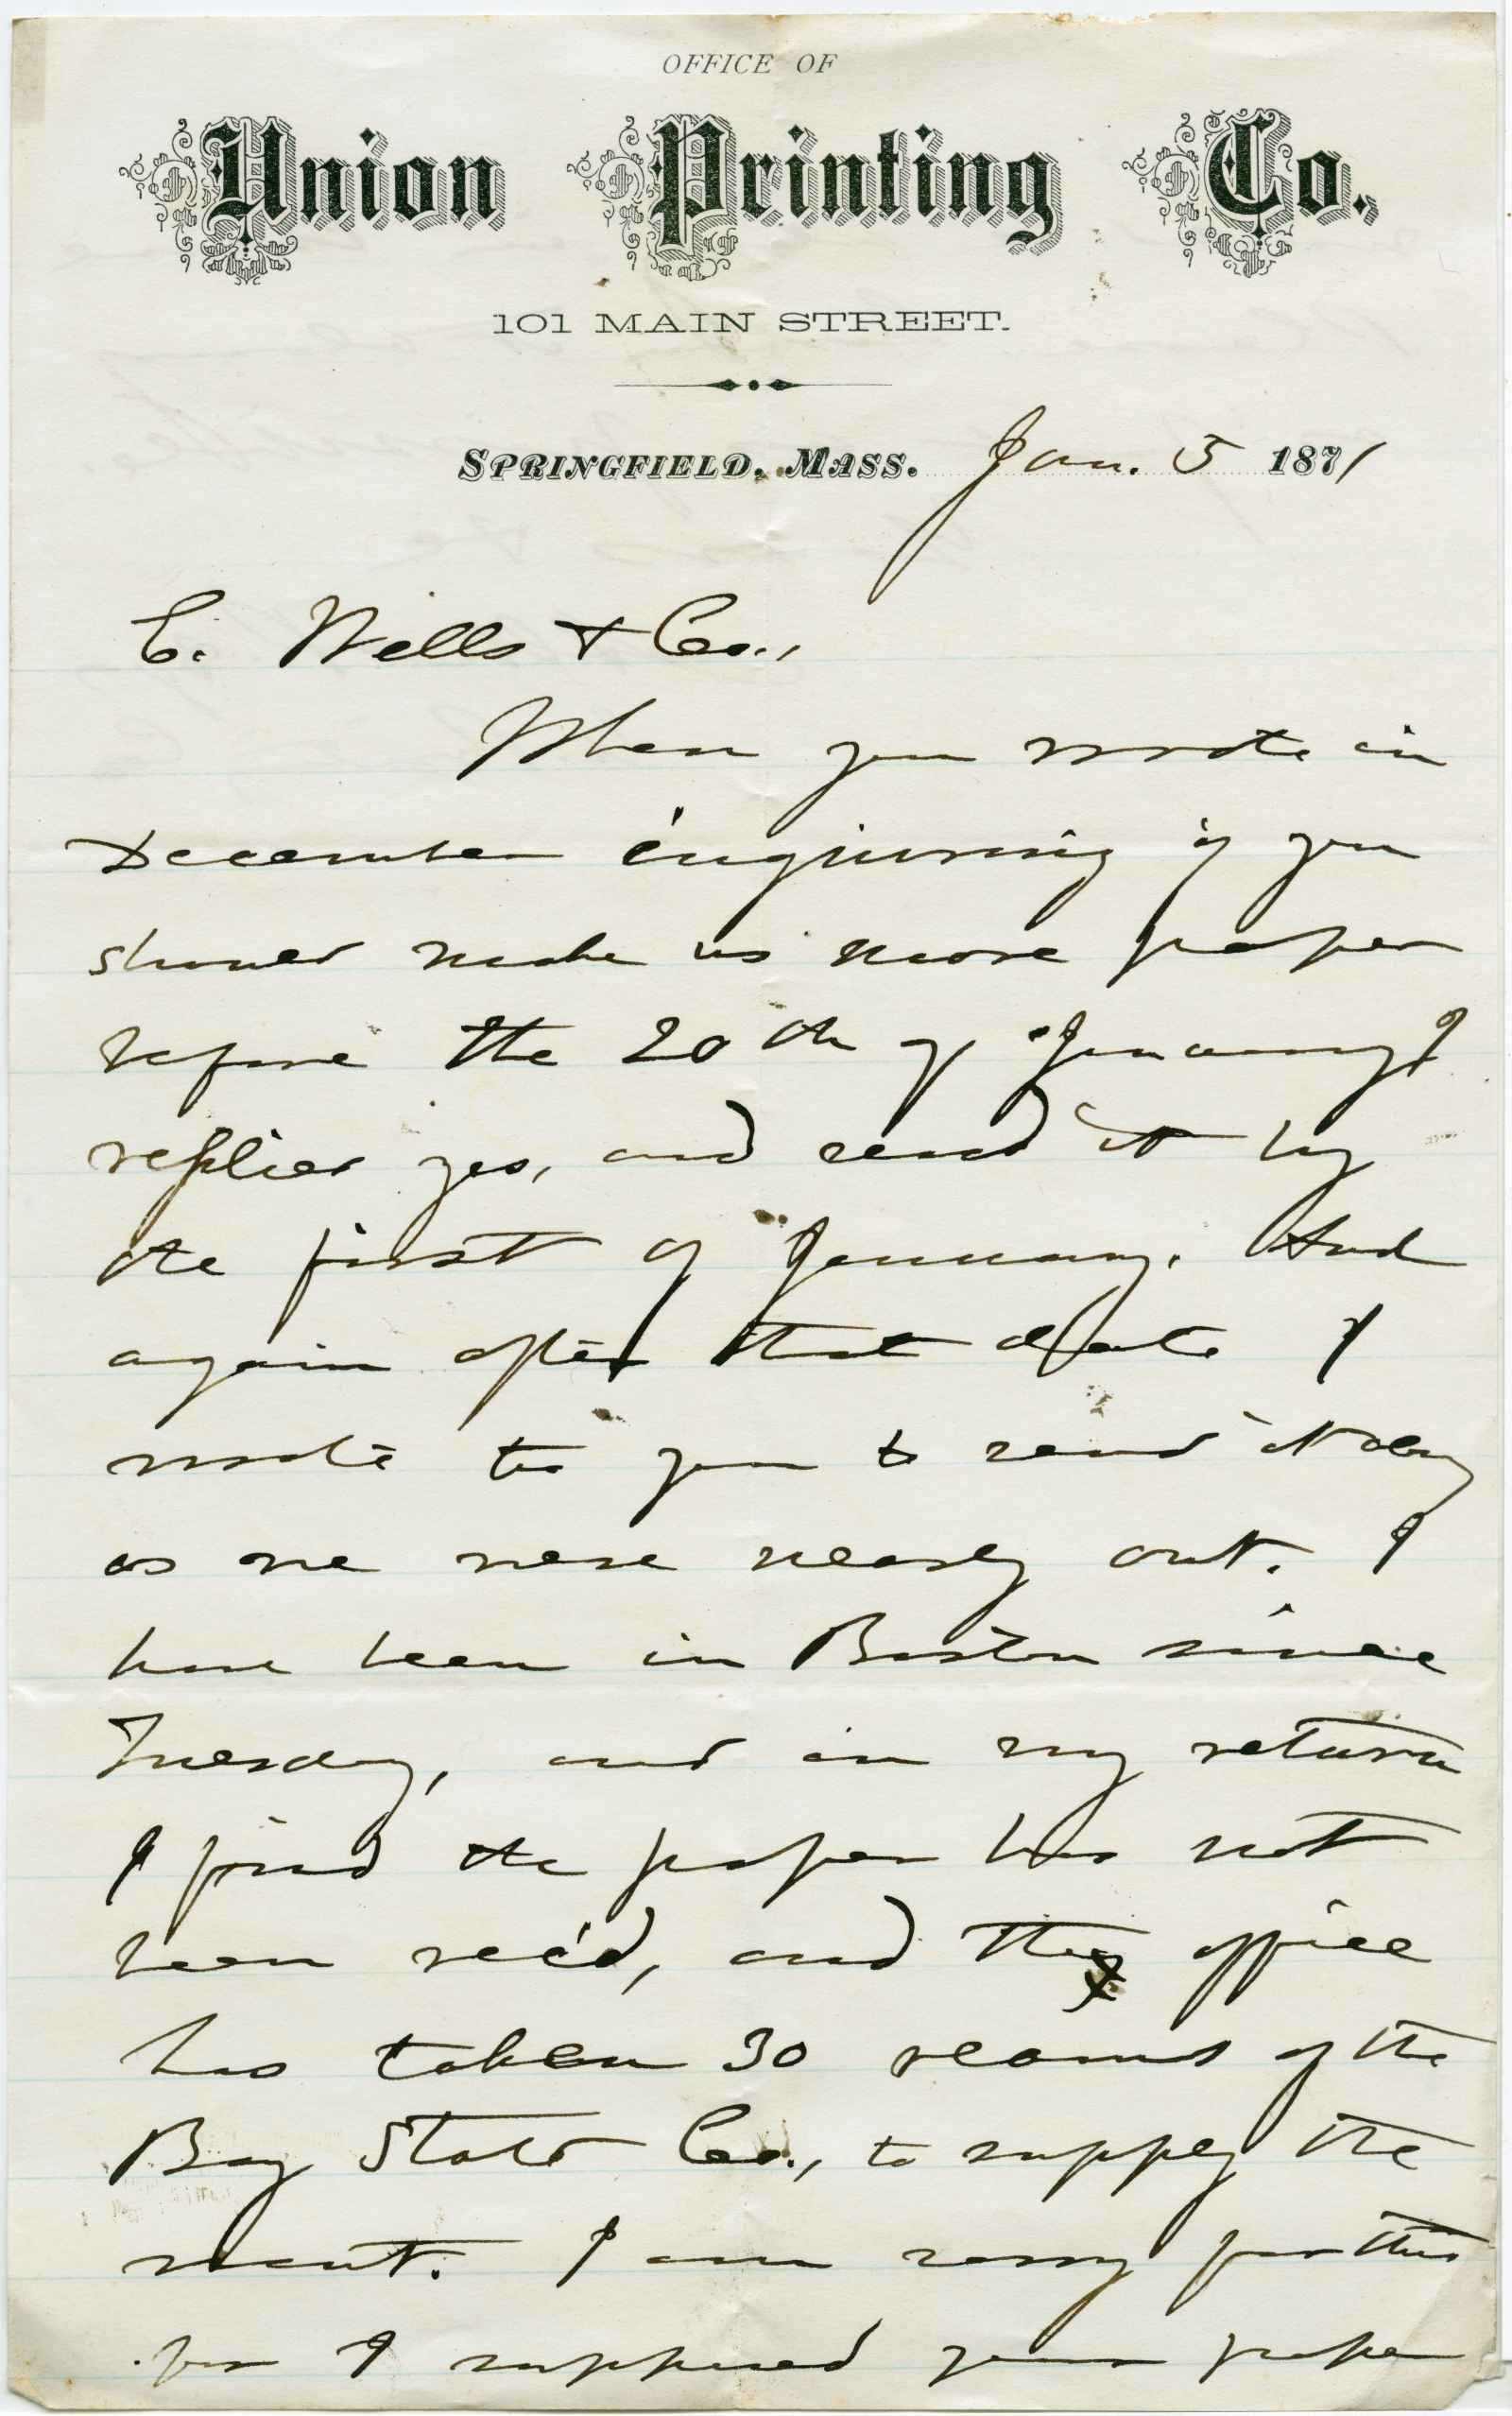 OFFICE OF
Union Printing Co.
101 MAIN STREET.
SPRINGFIELD, MASS. Jan. 5 1871
C. Wells & Co.,
When you wrote in
December inquiring if you
should make us more paper
before the 20th of January I
replied yes, and send it by
the first of January. And
again after that date I
wrote to you to send it
as we were nearly out. I
have been in Boston since
Tuesday, and on my return
I find the paper has not
been rec'd, and the office
has taken 30 reams of the
Bay State Co., to supply the
want. I am sorry for this
for I supposed your paper